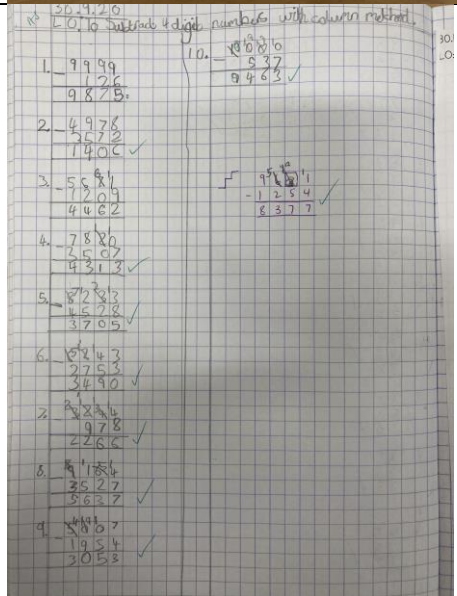 30.9.20
L.O. To Subtract 4 digit numbers with column method.
1. - 9999
126
9875.
2. - 4978
3572
1406
3. - 5681
1209
4462
4. - 7820
3507
4313
5. - 8283
4578
3705
6. - 6243
2753
3490
7. - 3244
978
2266
8. - 9164
3527
5637
9. - 5007
1954
3053
10. - 10000
537
9463
9631
- 1254
8377